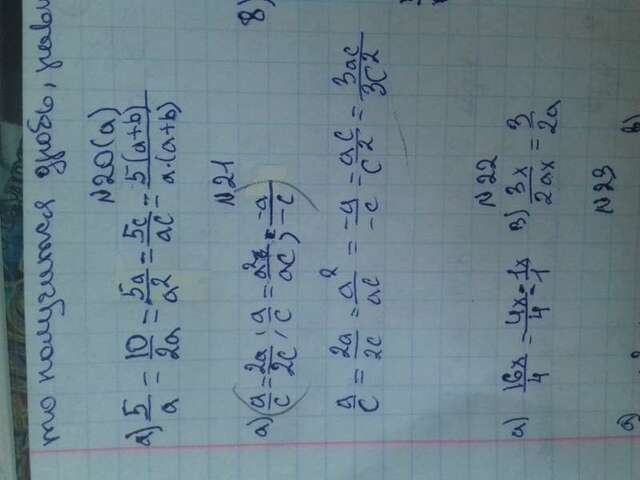 то получится дробь, равн
N20(a)
a) 5/a = 10/2a = 5a/a² = 5c/ac = 5(a+b)/a·(a+b)
N21
a) (a/c = 2a/2c ; a/c = a²/ac ; -a/-c) 8)
a/c = 2a/2c = a²/ac = -a/-c = ac/c² = 3ac/3c²
N22
a) 16x/4 = 4x/4 = 1x/1 в) 3x/2ax = 3/2a
N23
в)